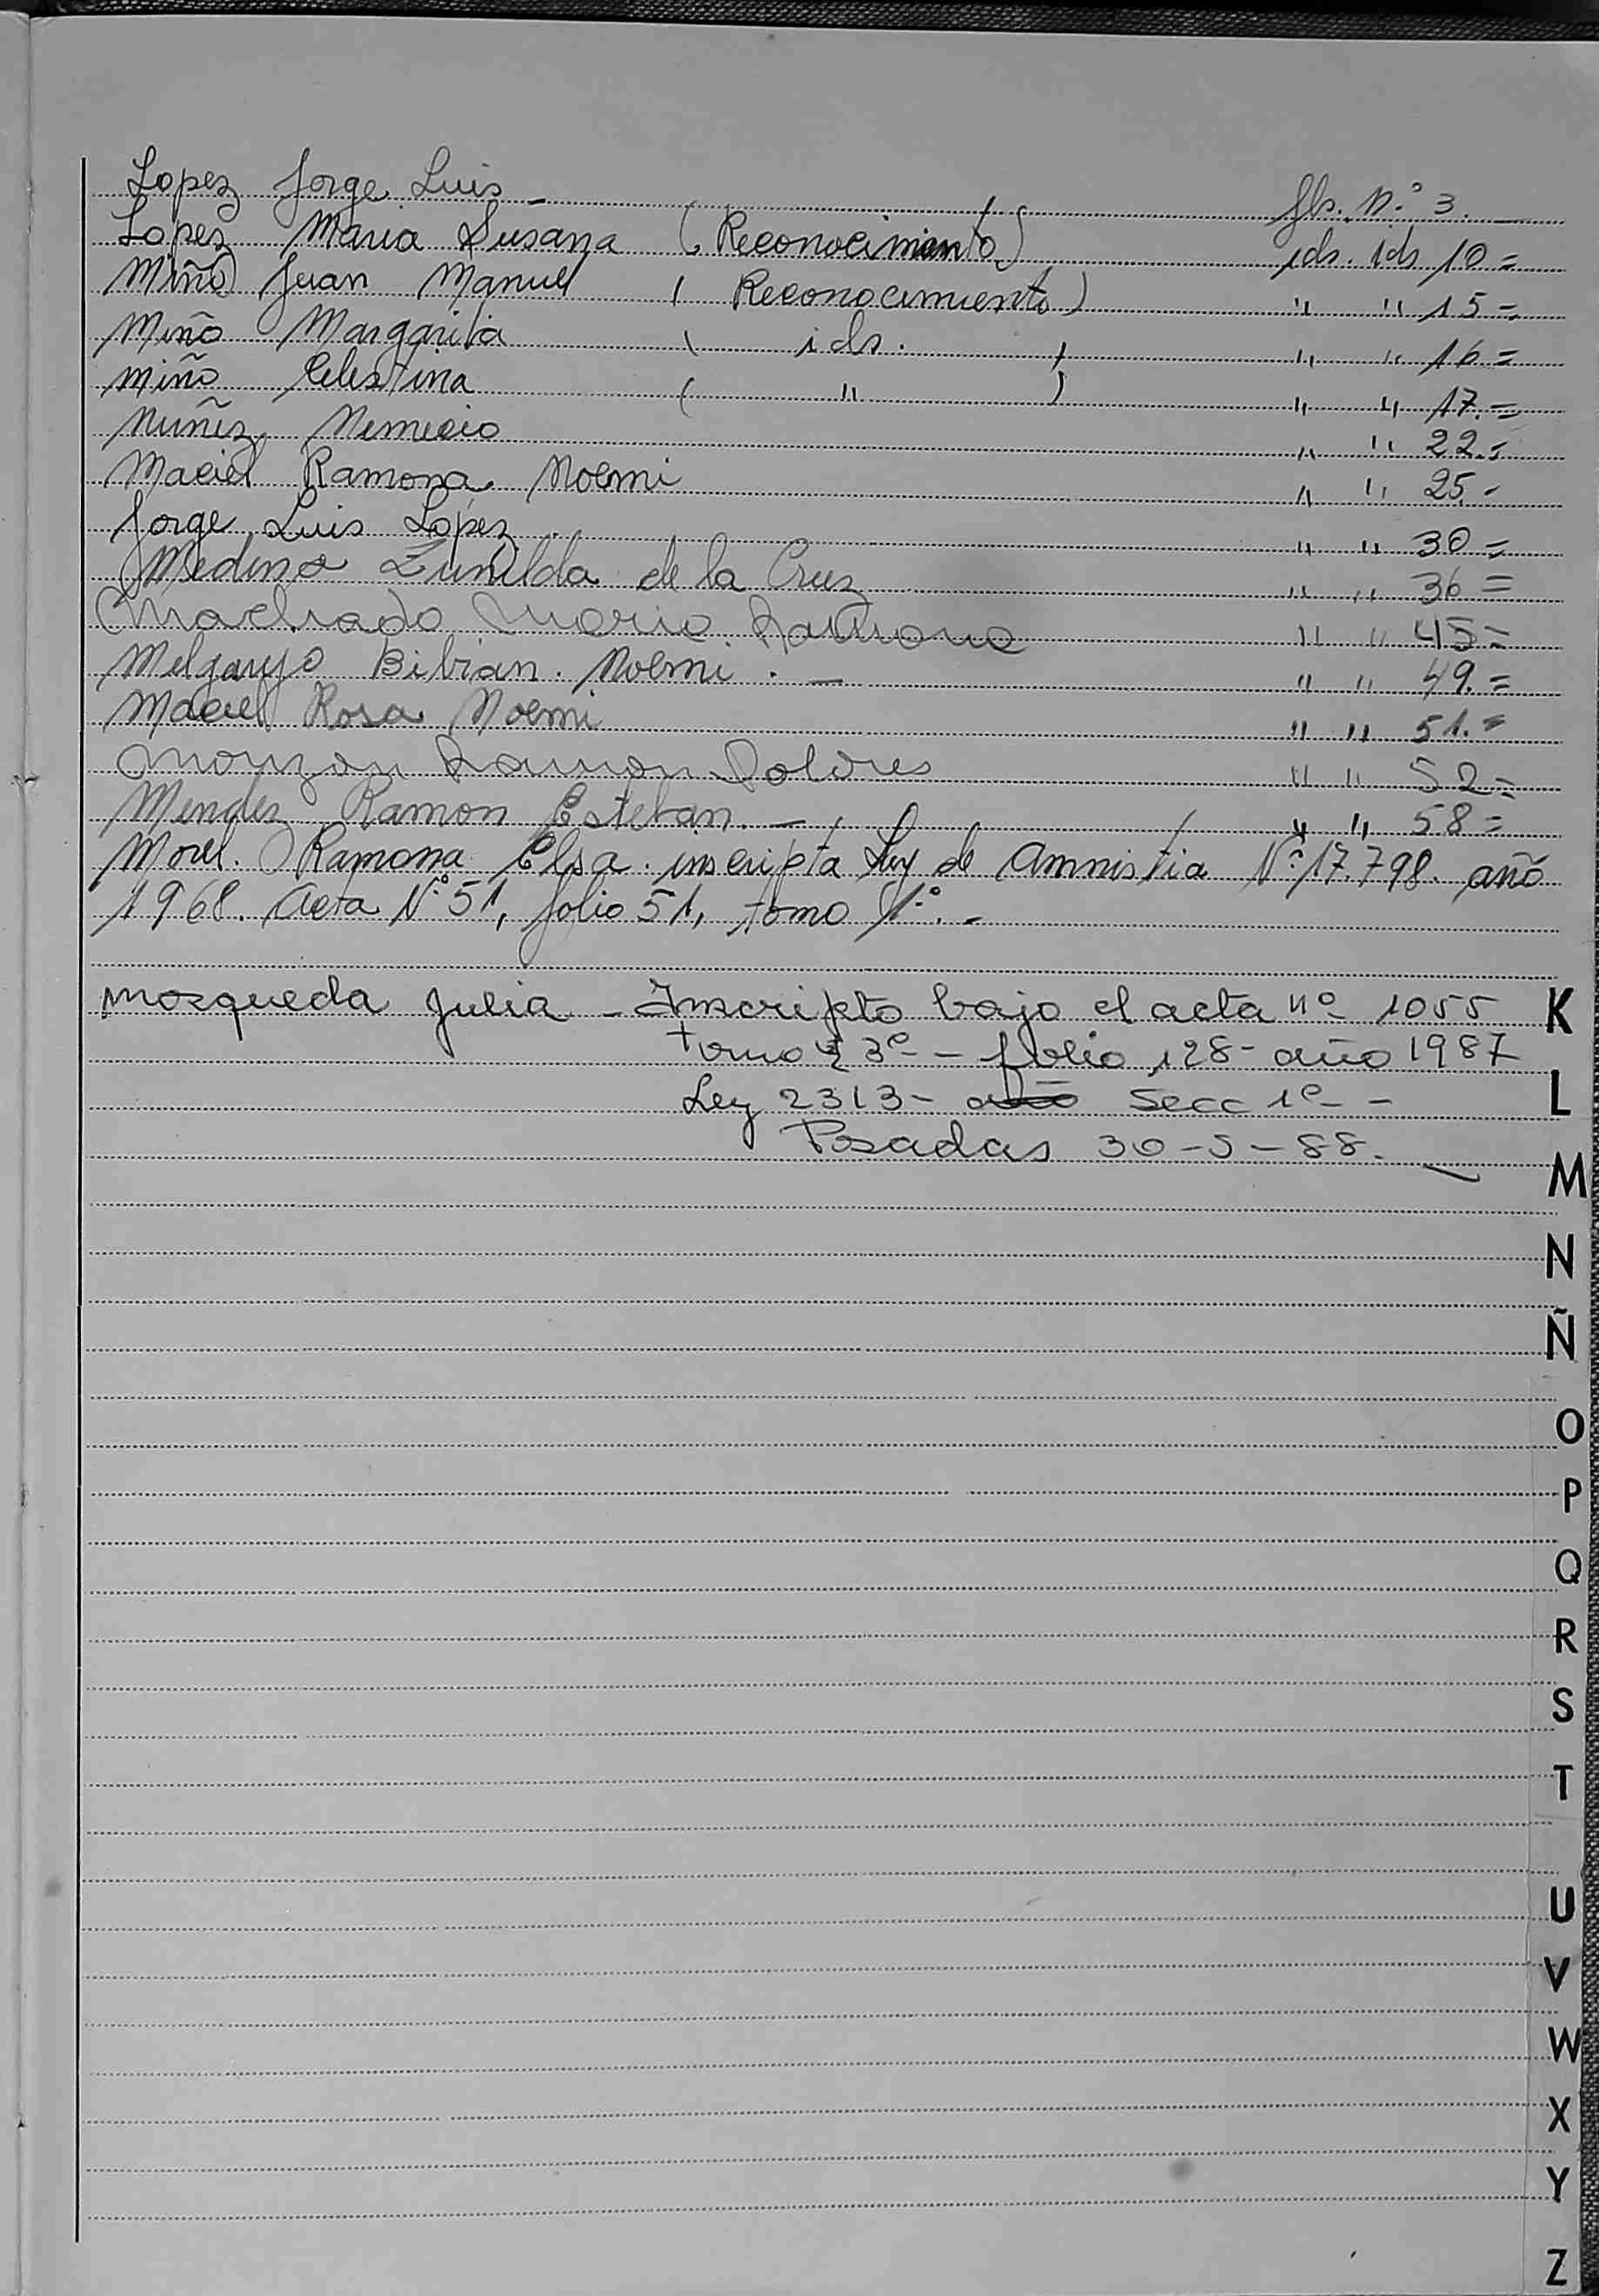 Lopez Jorge Luis — fls. N.° 3. —
Lopez Maria Susana (Reconocimiento) ids. ids 10 =
Miño Juan Manuel ( Reconocimiento) " " 15 =
Miño Margarita ( ids. ) " " 16 =
Miño Celestina ( " ) " " 17. =
Nuñez Nemecio " " 22. =
Maciel Ramona Noemi " " 25. -
Jorge Luis Lopez " " 30 =
Medina Zunilda de la Cruz " " 36 =
Machado Maria Ramona " " 45 =
Melgarejo Bibian. Noemi. — " " 49. =
Maciel Rosa Noemi " " 51. =
Monzon Ramon Dolores " " 52 =
Mendez Ramon Esteban. — " " 58 =
Morel. Ramona Elsa. inscripta Ley de Amnistia N.° 17.798. año
1968. Acta N° 51, folio 51, tomo 1.°. -
Mosqueda Julia - Inscripto bajo el acta n° 1055
tomo 3° - folio 128 - año 1987
Ley 2313 - año Secc 1° - -
Posadas 30-5-88.
K
L
M
N
Ñ
O
P
Q
R
S
T
U
V
W
X
Y
Z